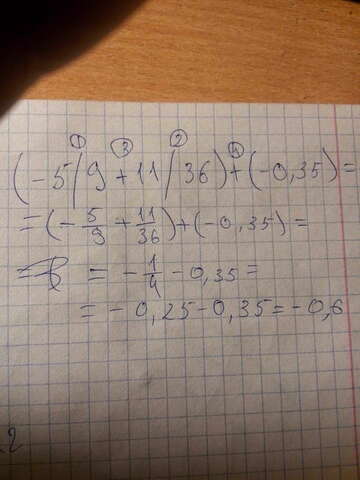 ① ③ ② ④
(-5/9+11/36)+(-0,35)=
=(-5/9+11/36)+(-0,35)=
= -1/4-0,35=
=-0,25-0,35=-0,6
2